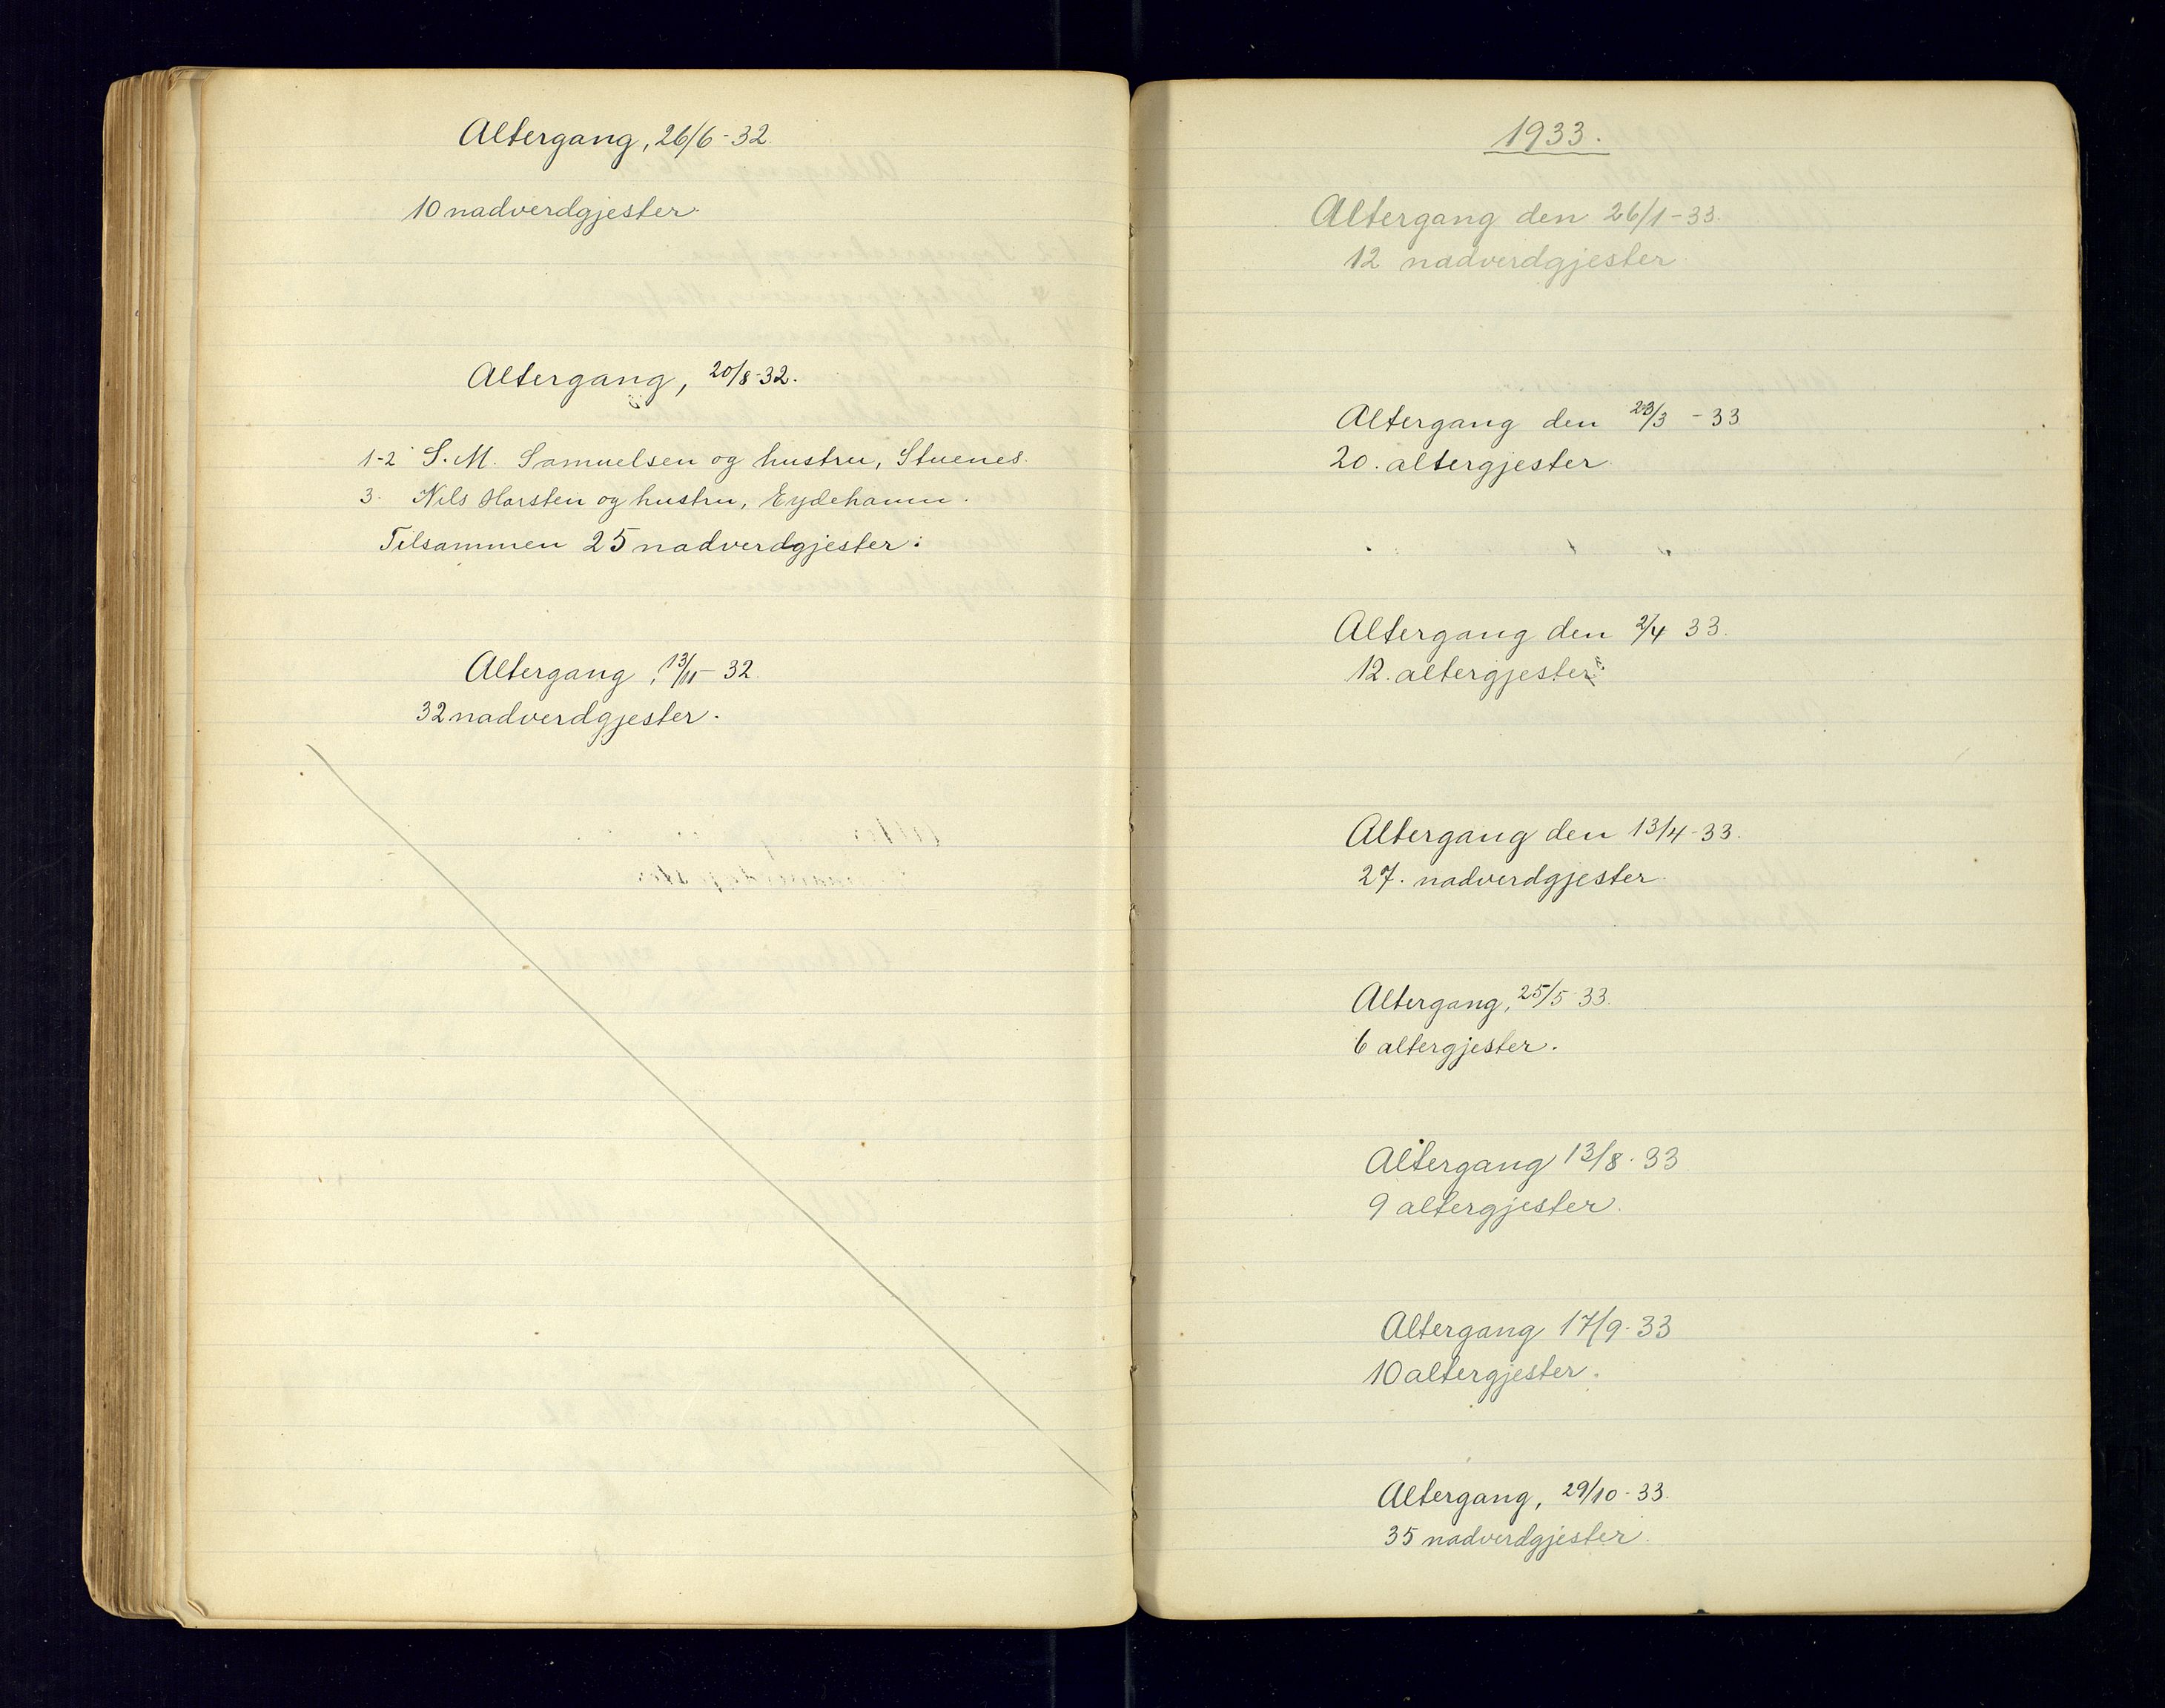 Altergang, 26/6-32.
10 nadverdgjester.
Altergang, 20/8-32.
1-2 S. M. Samuelsen og hustru, Stuenes.
3. Nils Harsten og hustru, Eydehamn.
Tilsammen 25 nadverdgjester.
Altergang, 13/11-32.
32 nadverdgjester.
1933.
Altergang den 26/1-33.
12 nadverdgjester
Altergang den 23/3 - 33
20. altergjester.
Altergang den 2/4 33.
12. altergjester.
Altergang den 13/4-33.
27. nadverdgjester.
Altergang, 25/5 33.
6 altergjester.
Altergang 13/8. 33
9 altergjester.
Altergang 17/9-33
10 altergjester.
Altergang, 29/10-33.
35 nadverdgjester.